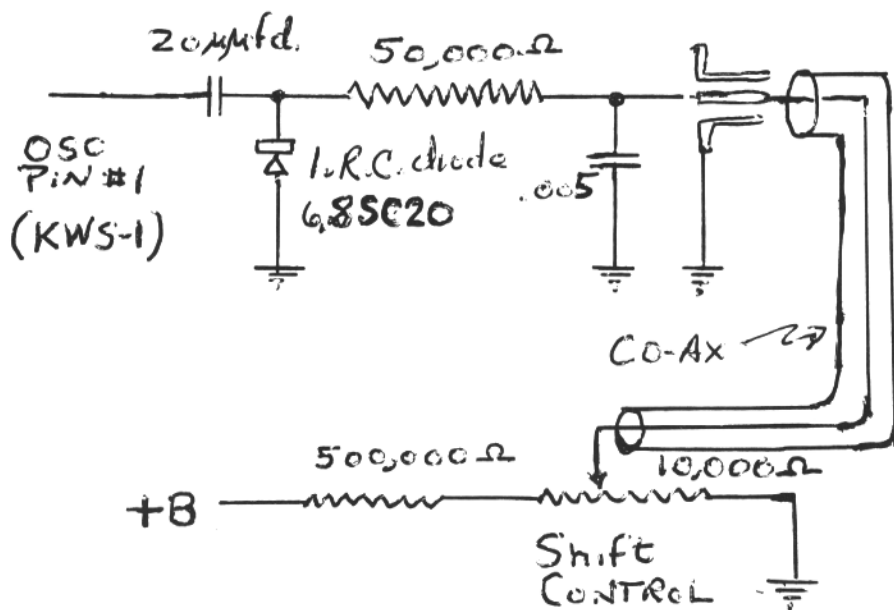 20μμfd.
50,000Ω
OSC
PIN #1
(KWS-1)
I.R.C. diode
6.8SC20
.005
CO-AX
500,000Ω
10,000Ω
+B
Shift
CONTROL